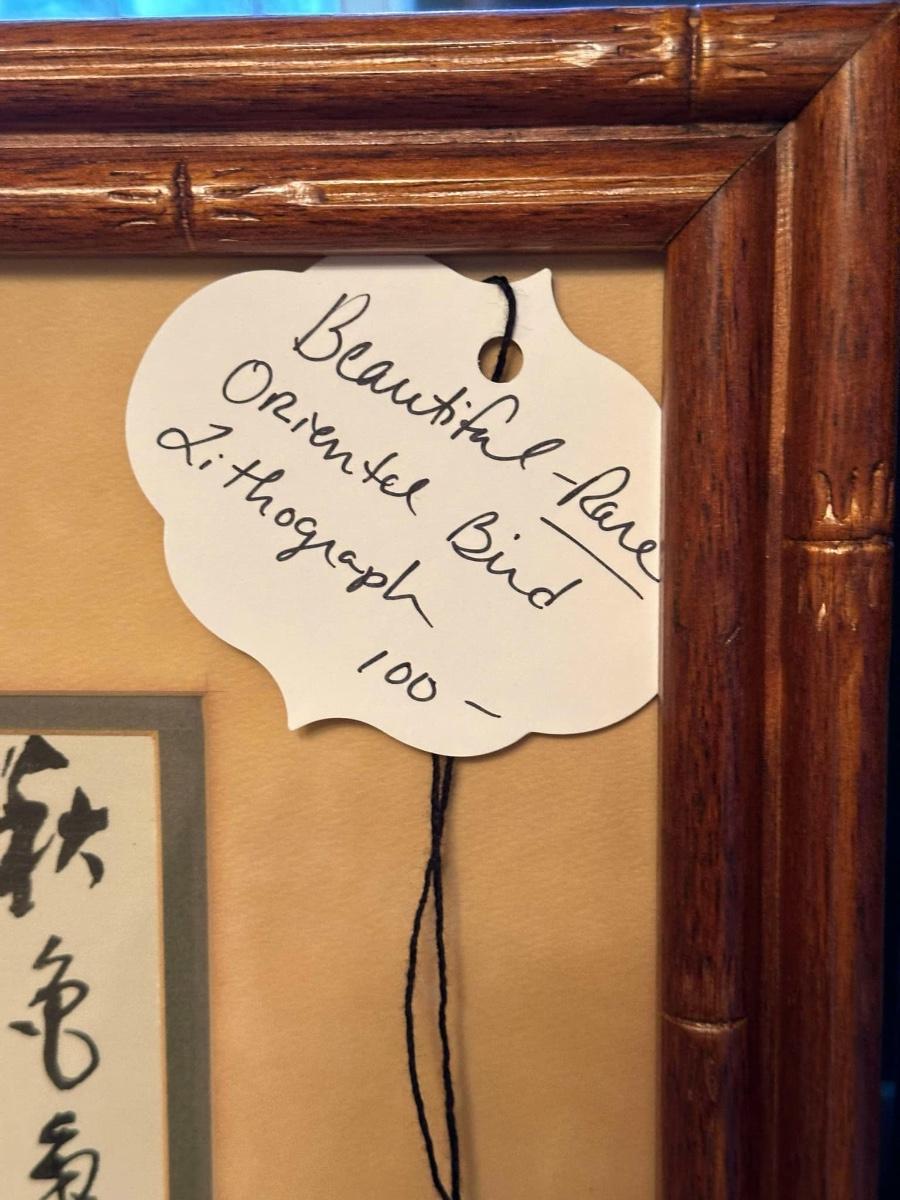 Beautiful - Rare
Oriental Bird
Lithograph
100 -
秋
色